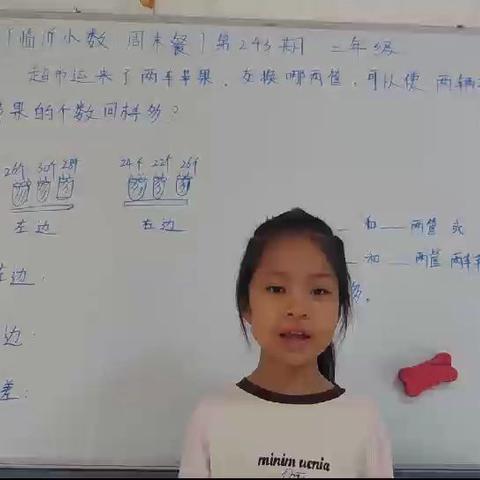 「临沂小数 周末餐」第243期 二年级
超市运来了两车苹果，交换哪两筐，可以使两辆
苹果的个数同样多？
26个 30个 28个 24个 22个 26个
左边 右边
和 两筐 或
和 两筐 两车苹
多。
左边：
边：
差：
minim ucnia